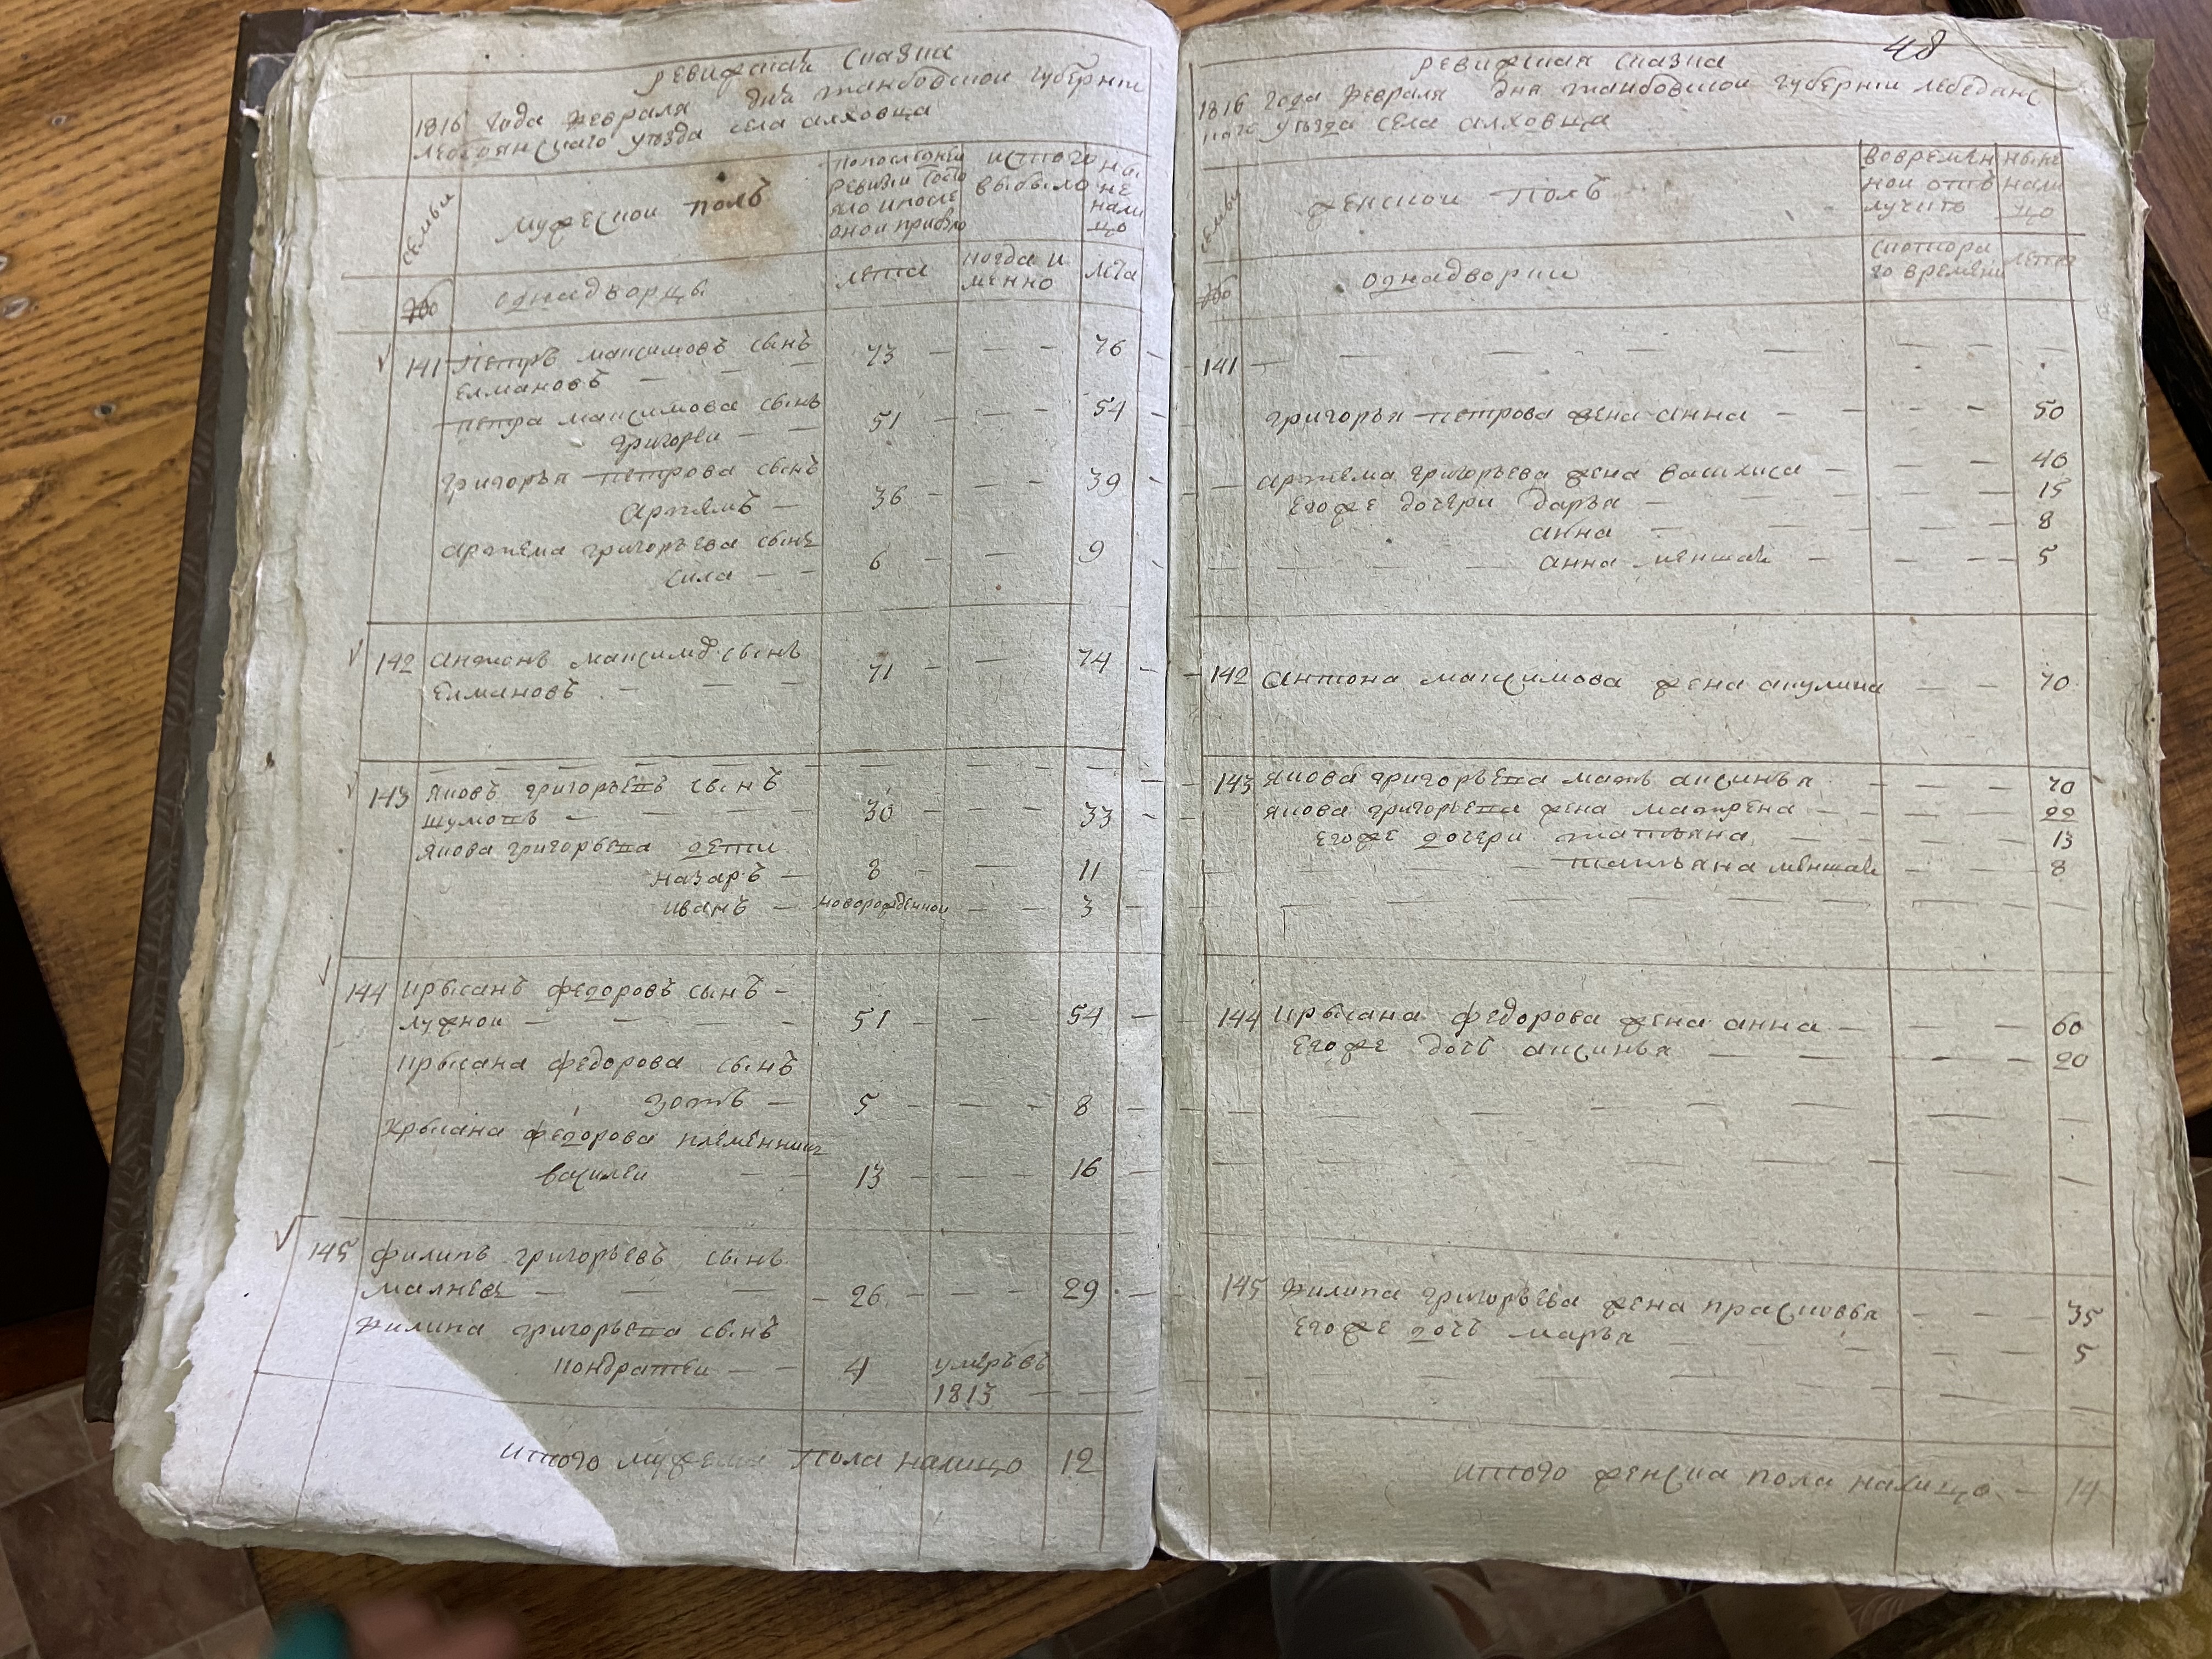 ревижская сказка
1816 года февраля дня танбовской губернии
лебедянскаго уѣзда села алховца
семьи
мужеской полъ
попоследней
ревизии состо
яло ипосле
оной прибыло
исттого
выбыло
ны
не
нали
цо
однадворцы
лета
когда и
менно
лета
141 Петръ максимовъ сынъ
елмановъ — — — 73 — — — 76
петра максимова сынъ
григореи — — 51 — — 54
григорья петрова сынъ
Артемъ — 36 — — — 39
артема григорьева сынъ
сила — — 6 — 9
142 антонъ максимов сынъ
елмановъ — — — 71 — 74
143 яковъ григорьевъ сынъ
шумовъ — — — 30 — — 33
якова григорьева дети
назаръ — 8 — — 11
иванъ — новорожденной — — 3
144 крысанъ федоровъ сынъ —
лужной — — — — 51 — — — 54
крысана федорова сынъ
зотъ — 5 — — — 8
крысана федорова племенникъ
василеи — — 13 — — 16
145 филипъ григорьевъ сынъ
малневъ — — — 26 — — — 29
филипа григорьева сынъ
кондратеи — — 4 умеръ въ
1813 — —
итого мужеска пола налицо 12
48
ревижская сказка
1816 года февраля дня танбовской губернии лебедянс
каго уѣзда села алховца
семьи
женской полъ
вовремян
ной отъ
лучить
ныне
нали
цо
однадворки
скотора
го времени
лета
141 — — — — — — — —
григорья петрова жена анна — — — 50
артема григорьева жена василиса — — — 40
егоже дочери дарья — — — 15
анна — — — 8
анна меншая — — — 5
142 антона максимова жена акулина — — 70
143 якова григорьева мать аксинья — — — 70
якова григорьева жена матрена — — — 22
егоже дочери татьяна — — — 13
татьяна меншая — — — 8
144 крысана федорова жена анна — — — 60
егоже дочь аксинья — — — — 20
145 филипа григорьева жена прасковья — — 35
егоже дочь марья — — — 5
итого женска пола налицо — 14